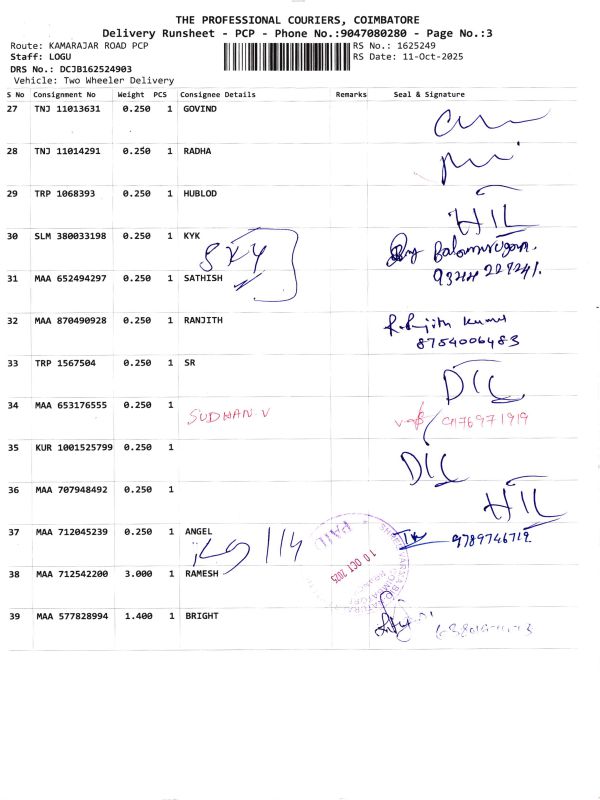 THE PROFESSIONAL COURIERS, COIMBATORE
Delivery Runsheet - PCP - Phone No.:9047080280 - Page No.:3
Route: KAMARAJAR ROAD PCP RS No.: 1625249
Staff: LOGU RS Date: 11-Oct-2025
DRS No.: DCJB162524903
Vehicle: Two Wheeler Delivery
S No Consignment No Weight PCS Consignee Details Remarks Seal & Signature
27 TNJ 11013631 0.250 1 GOVIND
28 TNJ 11014291 0.250 1 RADHA
29 TRP 1068393 0.250 1 HUBLOD
HIL
30 SLM 380033198 0.250 1 KYK
SKY Balamurugan.
31 MAA 652494297 0.250 1 SATHISH
32 MAA 870490928 0.250 1 RANJITH
R. Ranjith Kumar
8754006483
33 TRP 1567504 0.250 1 SR
DIC
34 MAA 653176555 0.250 1
SUDHAN V
35 KUR 1001525799 0.250 1
DIC
36 MAA 707948492 0.250 1
HIL
37 MAA 712045239 0.250 1 ANGEL
9789746712
114
PAID
10 OCT 2025
38 MAA 712542200 3.000 1 RAMESH
39 MAA 577828994 1.400 1 BRIGHT